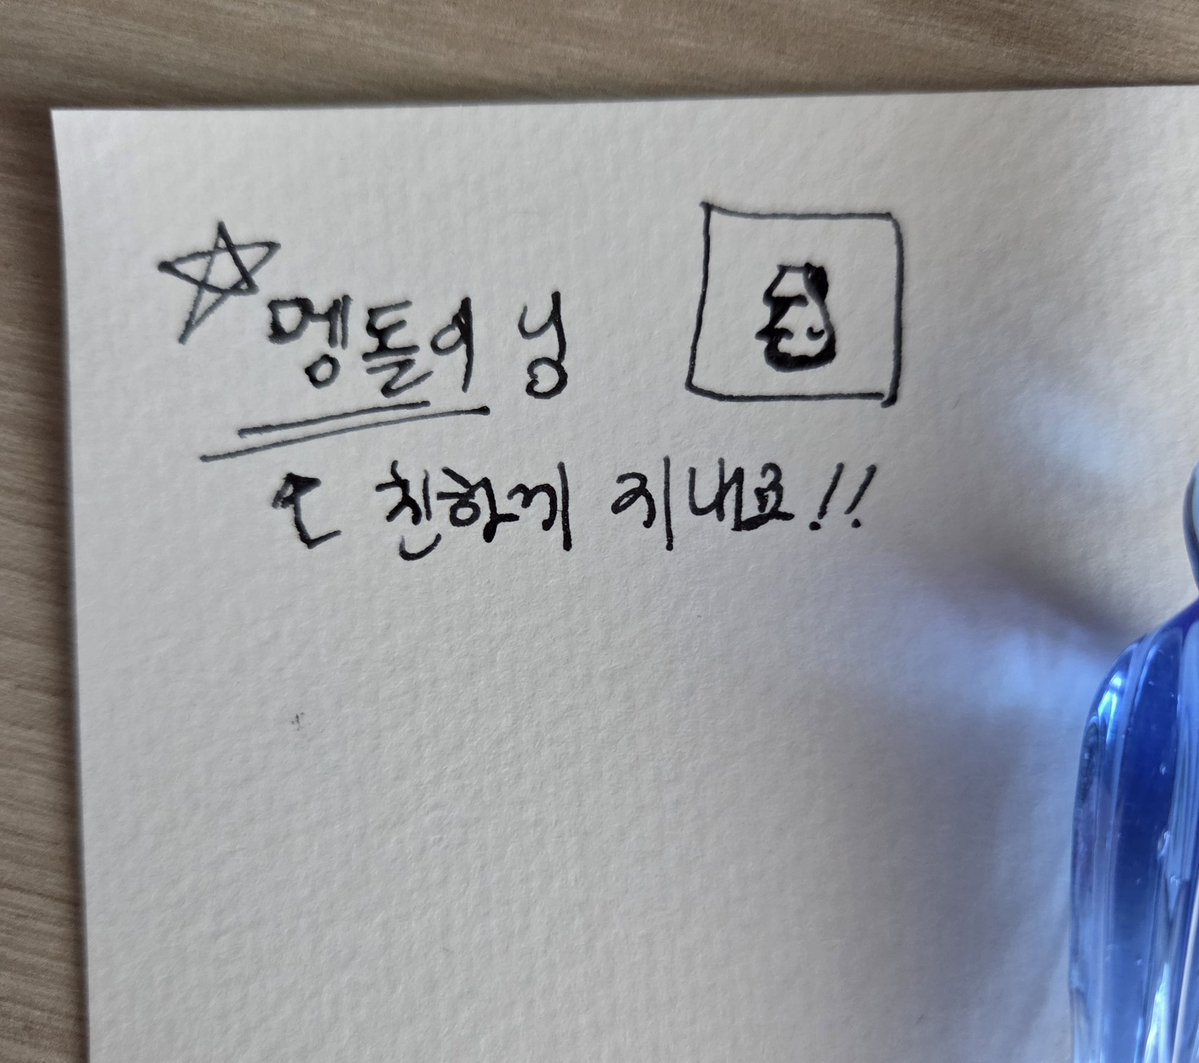 멩돌이 닝
친하게 지내요!!